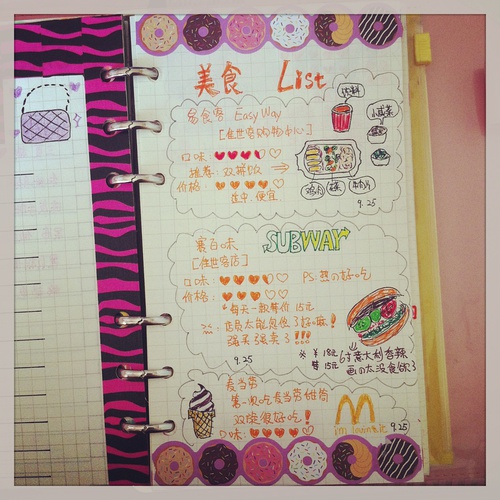 美食 List
易食客 Easy Way
饮料
[佳世客购物中心]
小咸菜
口味:
推荐: 双拼饭
价格:
适中 便宜
鸡肉
9.25
赛百味 SUBWAY
[佳世客店]
口味: PS: 想の好吃
价格:
*每天一款特价 15元
店员太能忽悠了好嘛!
强买强卖了!!!
9.25
※ ¥ 18元
特 15元
6寸意大利香辣
画の太没食欲了
麦当劳
第一次吃麦当劳甜筒
双旋很好吃!
口味:
i'm lovin' it
9.25